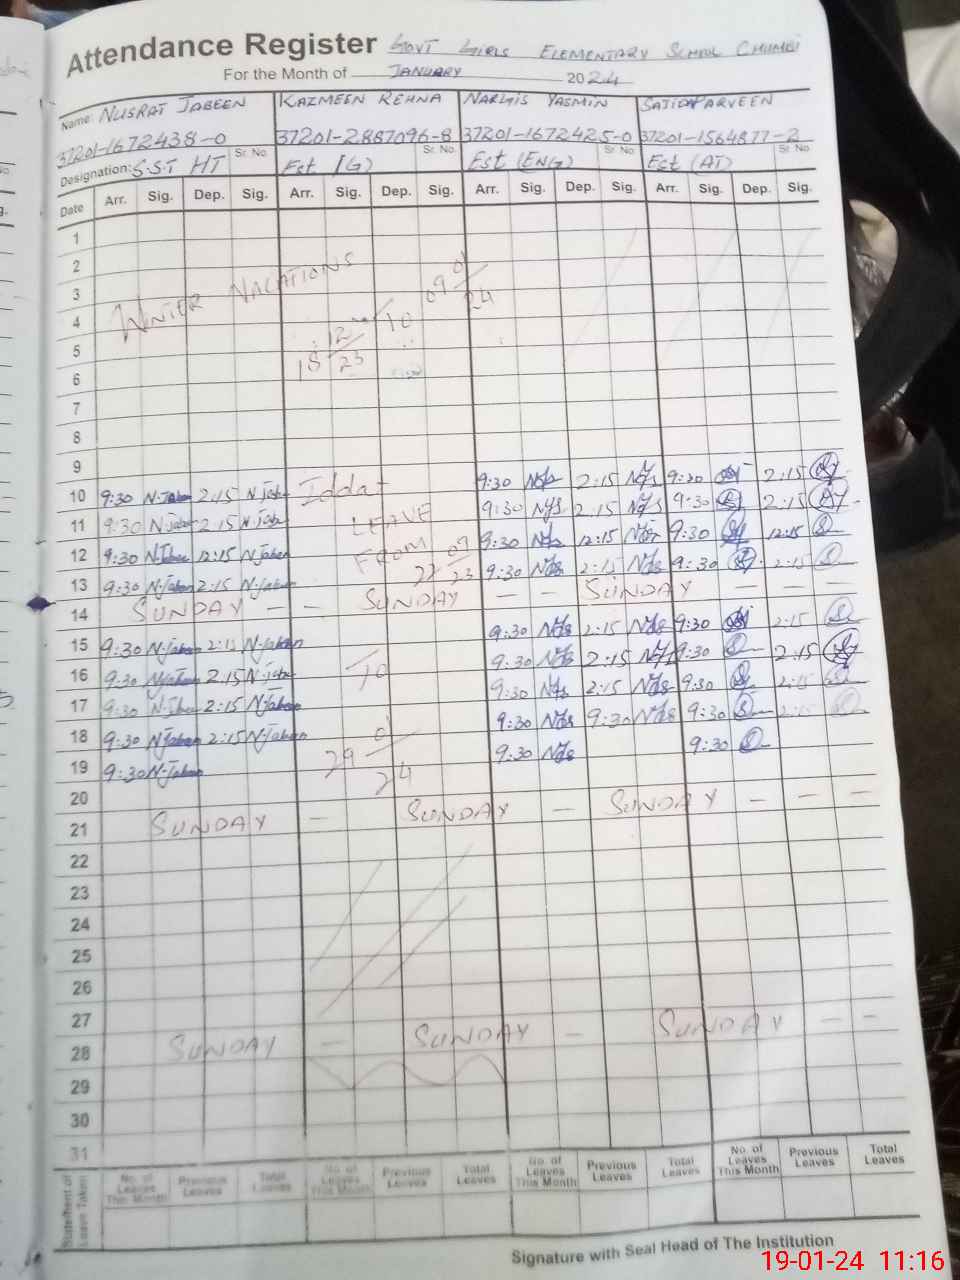 Attendance Register GOVT GIRLS ELEMENTARY SCHOOL CHUMBI
For the Month of JANUARY 2024
Name: NUSRAT JABEEN KAZMEEN REHNA NARGIS YASMIN SAJIDA PARVEEN
37201-1672438-0 37201-2887096-8 37201-1672425-0 37201-1564877-2
Sr. No. Sr. No. Sr. No. Sr. No.
Designation: S.S.T HT Est (G) Est (ENG) Est (AT)
Date Arr. Sig. Dep. Sig. Arr. Sig. Dep. Sig. Arr. Sig. Dep. Sig. Arr. Sig. Dep. Sig.
1
2
3 WINTER VACATIONS 09 01/24
4 TO
5 18 12/23
6
7
8
9
10 9:30 N.Jaben 2:15 N.Jabn Iddat 9:30 2:15 9:30 2:15
11 9:30 N.Jaben 2:15 N.Jabn LEAVE 9:30 2:15 9:30 2:15
12 9:30 N.Jaben 12:15 N.Jaben FROM 9:30 12:15 9:30 12:15
13 9:30 N.Jaben 2:15 N.Jaben 9:30 2:15 9:30 2:15
14 SUNDAY - - SUNDAY - - SUNDAY - - -
15 9:30 N.Jaben 2:15 N.Jaben 9:30 2:15 9:30 2:15
16 9:30 N.Jaben 2:15 N.Jabn TO 9:30 2:15 9:30 2:15
17 9:30 N.Jaben 2:15 N.Jaben 9:30 2:15 9:30 2:15
18 9:30 N.Jaben 2:15 N.Jaben 29 01/24 9:30 9:30 9:30 2:15
19 9:30 N.Jaben 9:30 9:30
20
21 SUNDAY - SUNDAY - SUNDAY - - -
22
23
24
25
26
27
28 SUNDAY - SUNDAY - SUNDAY - -
29
30
31
Statement of Leave Taken No. of Leaves This Month Previous Leaves Total Leaves No. of Leaves This Month Previous Leaves Total Leaves No. of Leaves This Month Previous Leaves Total Leaves No. of Leaves This Month Previous Leaves Total Leaves
Signature with Seal Head of The Institution
19-01-24 11:16